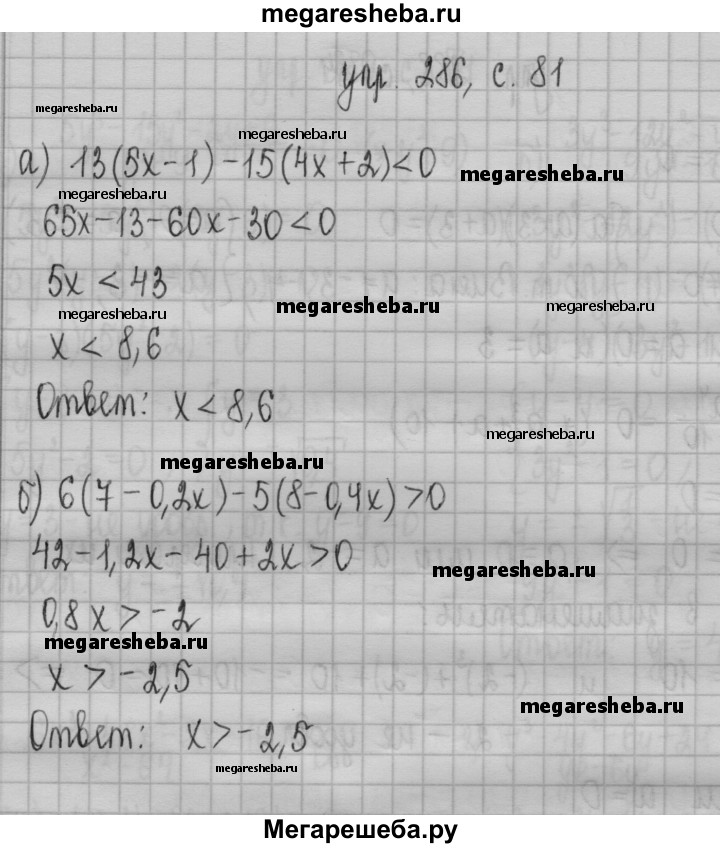 megaresheba.ru
упр. 286, с. 81
megaresheba.ru
megaresheba.ru
а) 13(5x-1)-15(4x+2)<0
megaresheba.ru
megaresheba.ru
65x-13-60x-30<0
5x < 43
megaresheba.ru
megaresheba.ru
megaresheba.ru
x < 8,6
Ответ: x < 8,6
megaresheba.ru
megaresheba.ru
б) 6(7-0,2x)-5(8-0,4x)>0
42-1,2x-40+2x>0
megaresheba.ru
0,8x > -2
megaresheba.ru
x > -2,5
megaresheba.ru
Ответ: x > -2,5
megaresheba.ru
Мегарешеба.ру